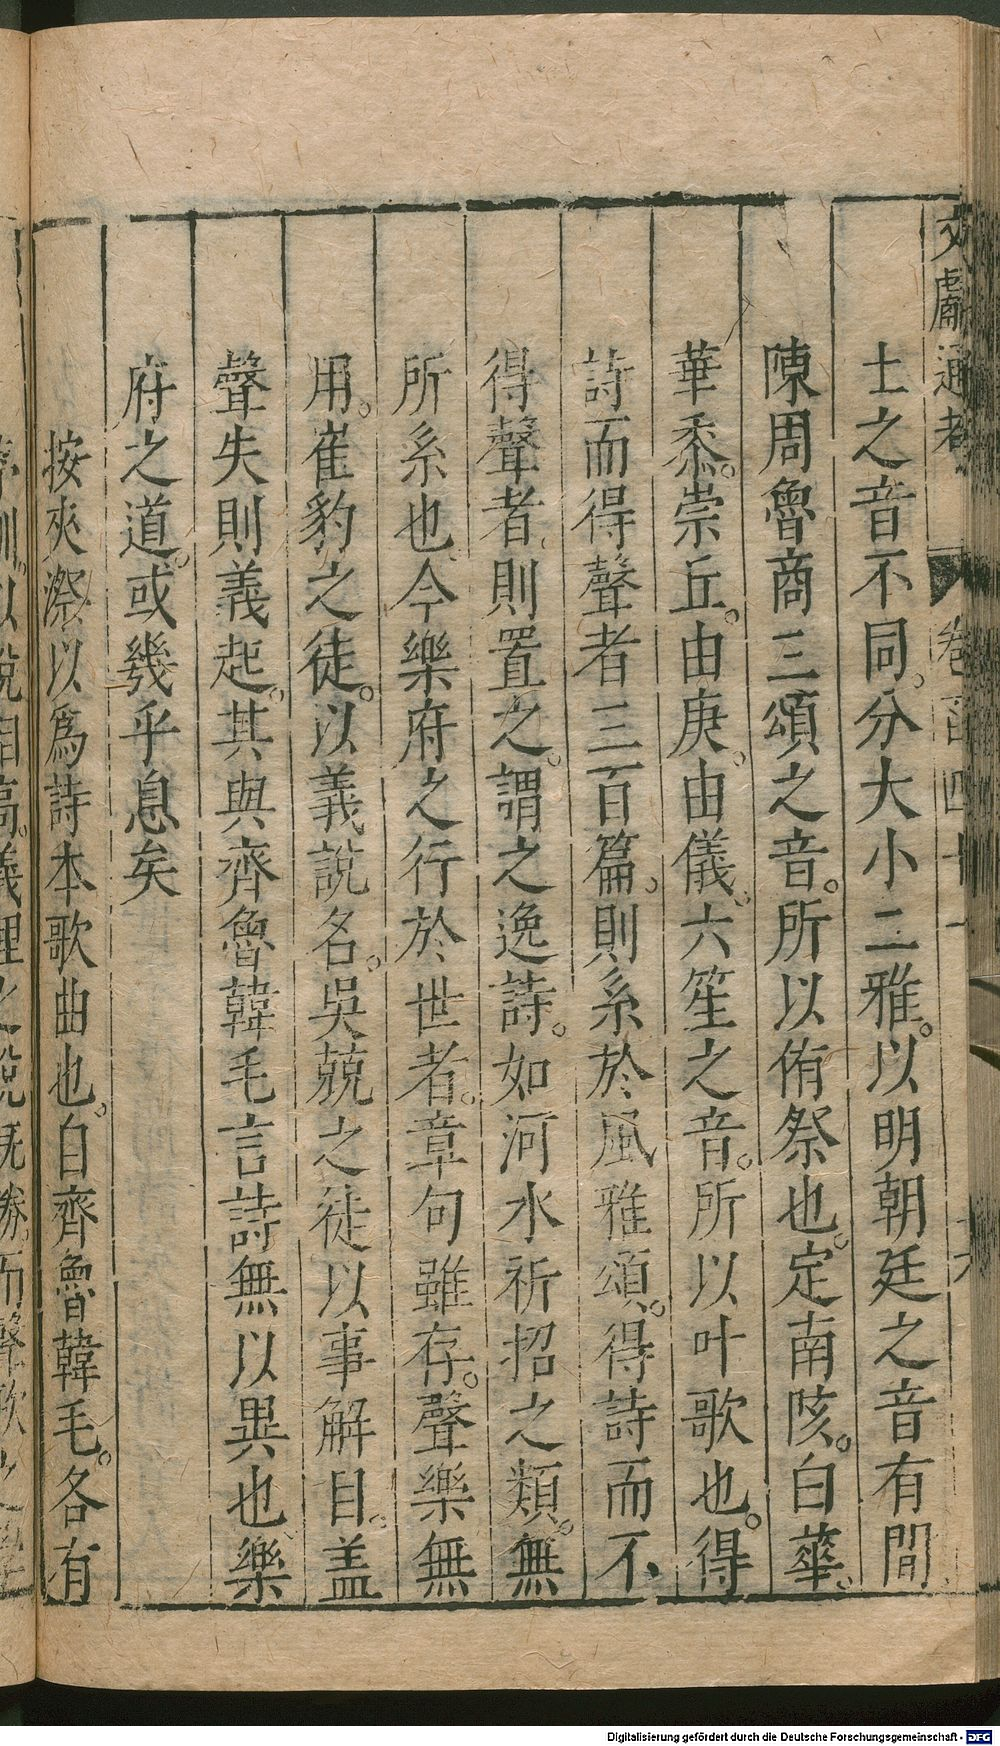 文獻通考 卷一百四十一 十六
士之音不同。分大小二雅。以明朝廷之音有間
陳周魯商三頌之音。所以侑祭也。定南陔。白華。
華黍。崇丘。由庚。由儀。六笙之音。所以叶歌也。得
詩而得聲者三百篇。則系於風雅頌。得詩而不
得聲者。則置之。謂之逸詩。如河水祈招之類。無
所系也。今樂府之行於世者。章句雖存。聲樂無
用。崔豹之徒。以義說名。吳兢之徒以事解目。盖
聲失則義起。其與齊魯韓毛言詩無以異也樂
府之道。或幾乎息矣
按夾漈以爲詩本歌曲也。自齊魯韓毛。各有
以說相高。義理之說旣勝。而聲歌之學
Digitalisierung gefördert durch die Deutsche Forschungsgemeinschaft - DFG